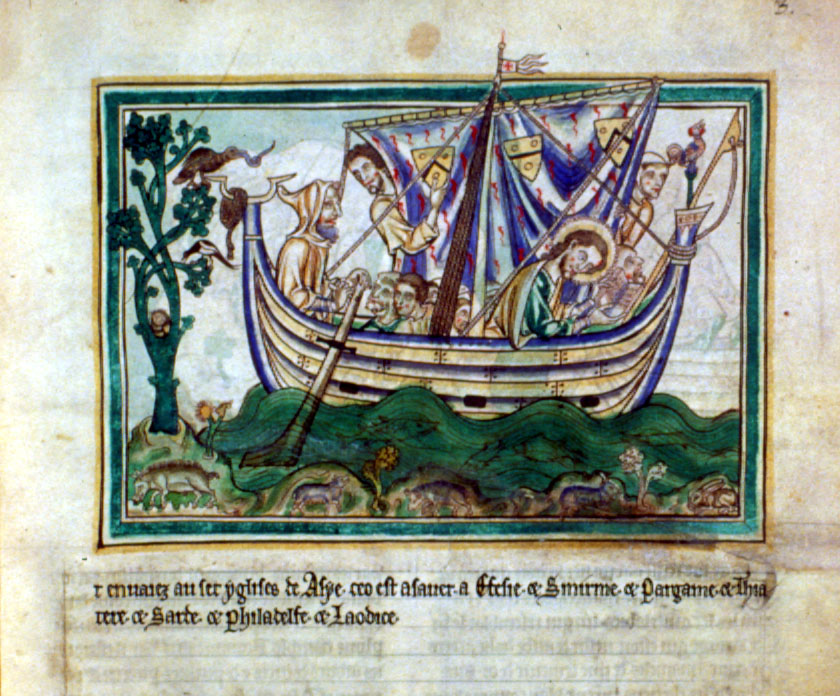 3.
r enuaiez au set yglises de Asye. ceo est asauer. a Efesie. & Smirme. & Pargame. & Thia
tere. & Sarde. & Philadelfe. & Laodice.